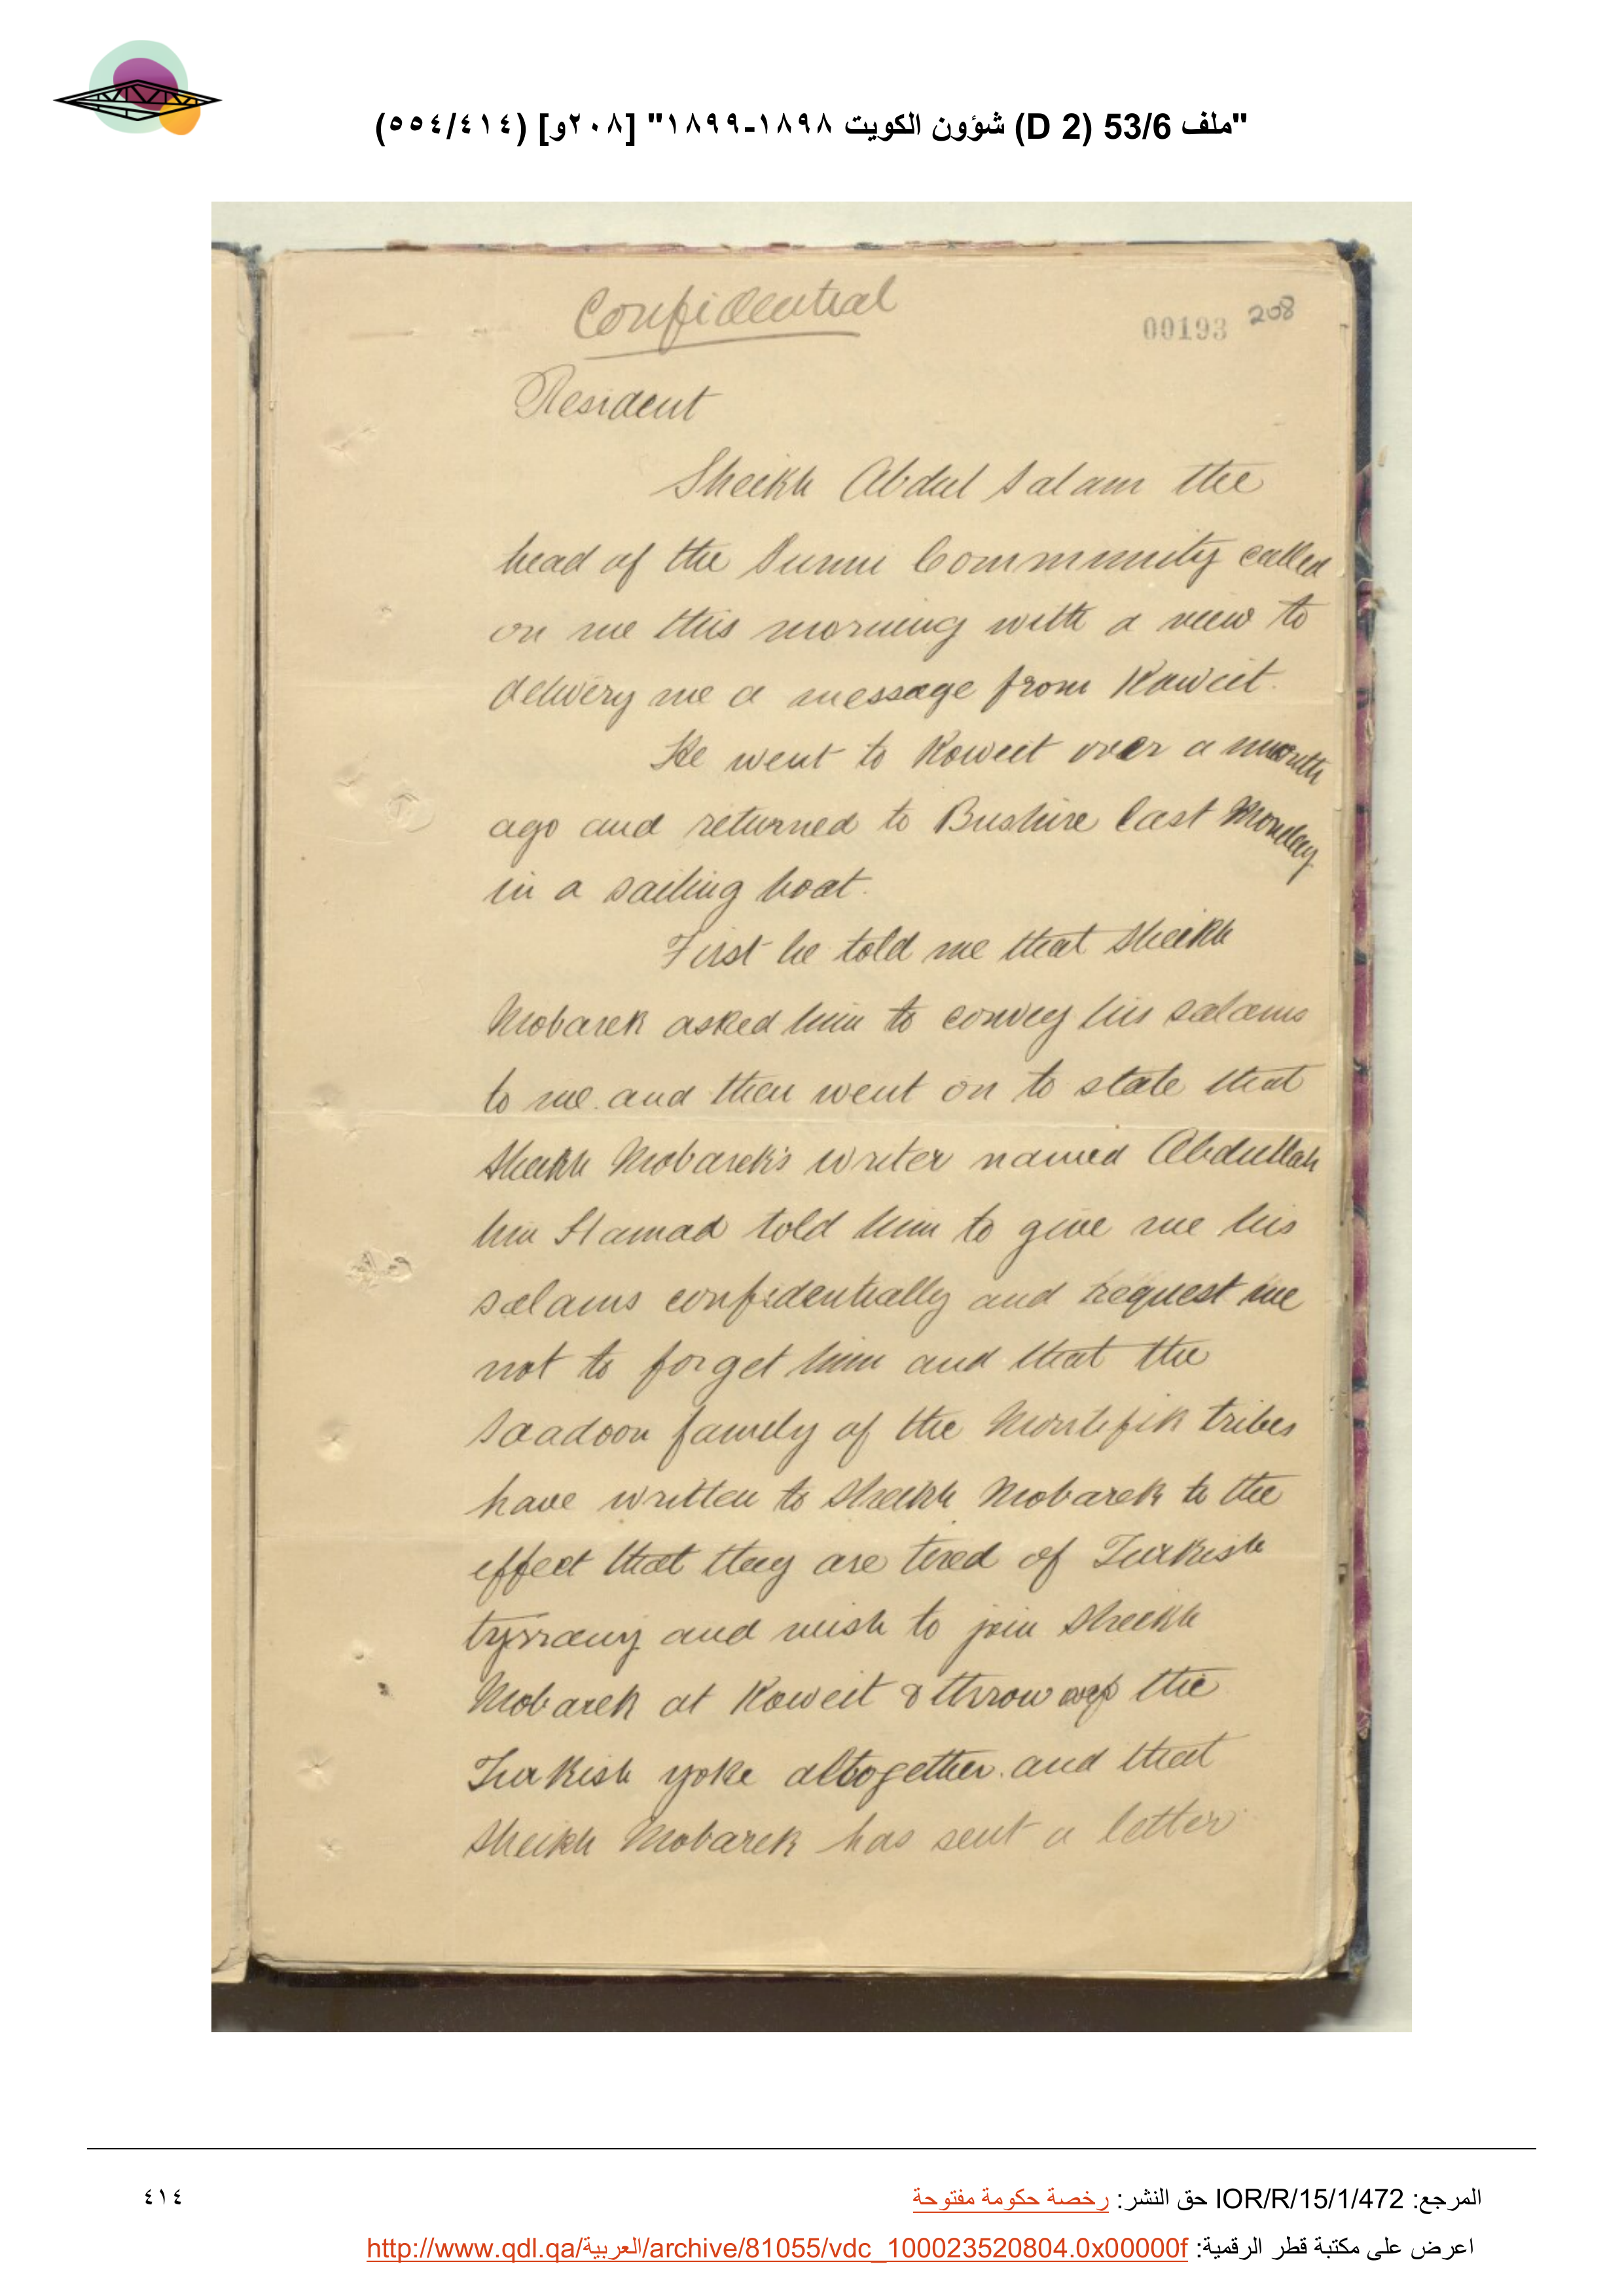 "ملف 53/6 (D 2) شؤون الكويت ١٨٩٨-١٨٩٩" [٢٠٨و] (٥٥٤/٤١٤)
Confidential
00193 208
Resident
Sheikh Abdul Salam the
head of the Sunni Community called
on me this morning with a view to
delivery me a message from Koweit.
He went to Koweit over a month
ago and returned to Bushire last Monday
in a sailing boat.
First he told me that Sheikh
Mobarek asked him to convey his salams
to me and then went on to state that
Sheikh Mobarek's writer named Abdullah
bin Hamad told him to give me his
salams confidentially and request me
not to forget him and that the
Saadoon family of the Montefik tribes
have written to Sheikh Mobarek to the
effect that they are tired of Turkish
tyrrany and wish to join Sheikh
Mobarek at Koweit & throw the
Turkish yoke altogether and that
Sheikh Mobarek has sent a letter
المرجع: IOR/R/15/1/472 حق النشر: رخصة حكومة مفتوحة
٤١٤
اعرض على مكتبة قطر الرقمية: http://www.qdl.qa/العربية/archive/81055/vdc_100023520804.0x00000f